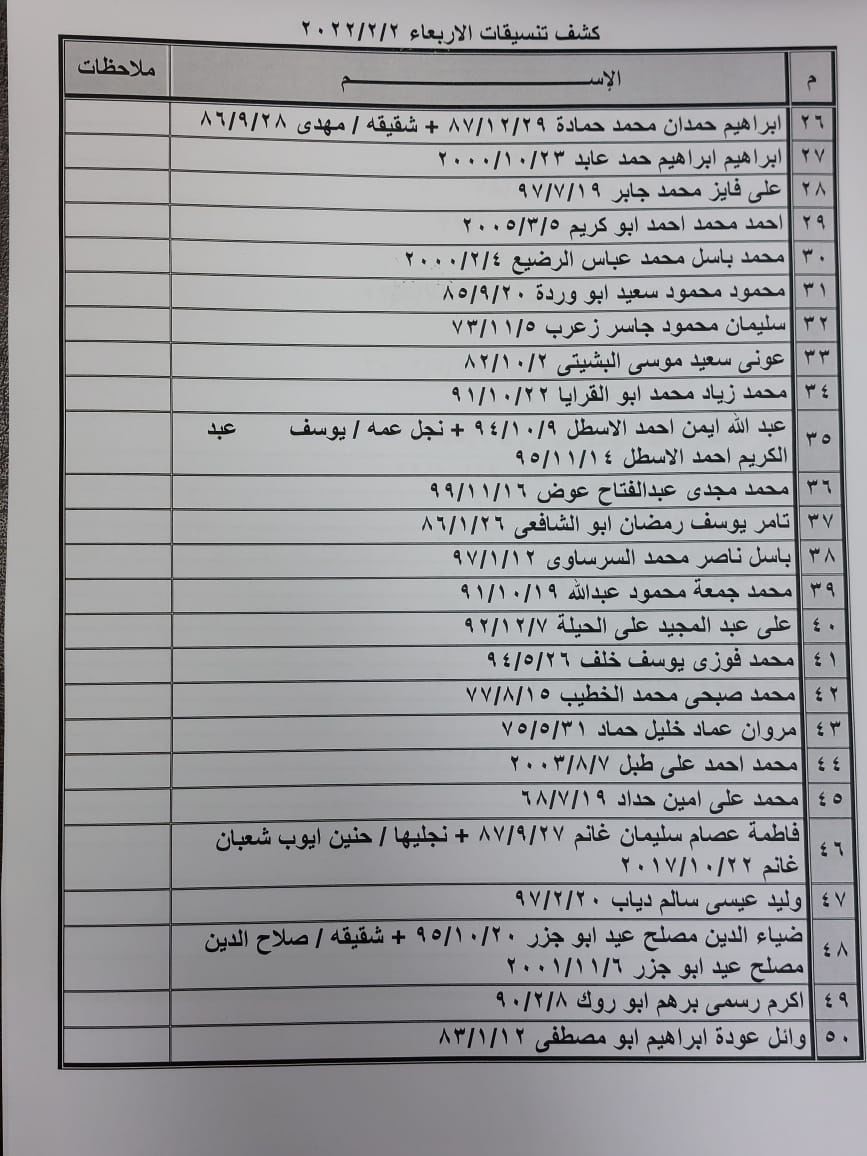 كشف تنسيقات الاربعاء ٢٠٢٢/٢/٢
م الإســـم ملاحظات
٢٦ ابراهيم حمدان محمد حمادة ٨٧/١٢/٢٩ + شقيقه / مهدى ٨٦/٩/٢٨
٢٧ ابراهيم ابراهيم حمد عابد ٢٠٠٠/١٠/٢٣
٢٨ على فايز محمد جابر ٩٧/٧/١٩
٢٩ احمد محمد احمد ابو كريم ٢٠٠٥/٣/٥
٣٠ محمد باسل محمد عباس الرضيع ٢٠٠٠/٢/٤
٣١ محمود محمود سعيد ابو وردة ٨٥/٩/٢٠
٣٢ سليمان محمود جاسر زعرب ٧٣/١١/٥
٣٣ عونى سعيد موسى البشيتى ٨٢/١٠/٢
٣٤ محمد زياد محمد ابو القرايا ٩١/١٠/٢٢
٣٥ عبد الله ايمن احمد الاسطل ٩٤/١٠/٩ + نجل عمه / يوسف عبد
الكريم احمد الاسطل ٩٥/١١/١٤
٣٦ محمد مجدى عبدالفتاح عوض ٩٩/١١/١٦
٣٧ تامر يوسف رمضان ابو الشافعى ٨٦/١/٢٦
٣٨ باسل ناصر محمد السرساوى ٩٧/١/١٢
٣٩ محمد جمعة محمود عبدالله ٩١/١٠/١٩
٤٠ على عبد المجيد على الحيلة ٩٢/١٢/٧
٤١ محمد فوزى يوسف خلف ٩٤/٥/٢٦
٤٢ محمد صبحى محمد الخطيب ٧٧/٨/١٥
٤٣ مروان عماد خليل حماد ٧٥/٥/٣١
٤٤ محمد احمد على طبل ٢٠٠٣/٨/٧
٤٥ محمد على امين حداد ٦٨/٧/١٩
٤٦ فاطمة عصام سليمان غانم ٨٧/٩/٢٧ + نجليها / حنين ايوب شعبان
غانم ٢٠١٧/١٠/٢٢
٤٧ وليد عيسى سالم دياب ٩٧/٢/٢٠
٤٨ ضياء الدين مصلح عيد ابو جزر ٩٥/١٠/٢٠ + شقيقه / صلاح الدين
مصلح عيد ابو جزر ٢٠٠١/١١/٦
٤٩ اكرم رسمى برهم ابو روك ٩٠/٢/٨
٥٠ وائل عودة ابراهيم ابو مصطفى ٨٣/١/١٢